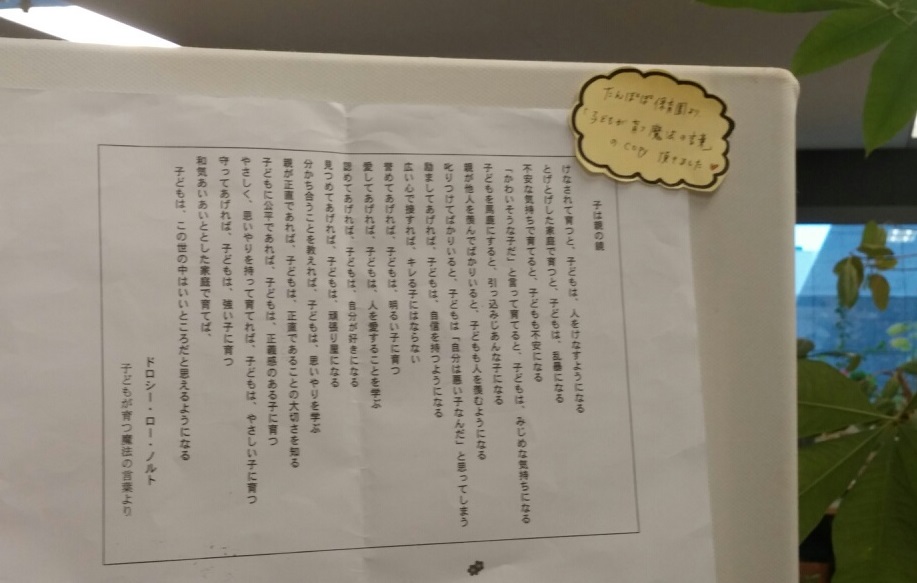 たんぽぽ保育園より
「子どもが育つ魔法の言葉」
の copy 頂きました
子は親の鏡
けなされて育つと、子どもは、人をけなすようになる
とげとげした家庭で育つと、子どもは、乱暴になる
不安な気持ちで育てると、子どもも不安になる
「かわいそうな子だ」と言って育てると、子どもは、みじめな気持ちになる
子どもを馬鹿にすると、引っ込みじあんな子になる
親が他人を羨んでばかりいると、子どもも人を羨むようになる
叱りつけてばかりいると、子どもは「自分は悪い子なんだ」と思ってしまう
励ましてあげれば、子どもは、自信を持つようになる
広い心で接すれば、キレる子にはならない
誉めてあげれば、子どもは、明るい子に育つ
愛してあげれば、子どもは、人を愛することを学ぶ
認めてあげれば、子どもは、自分が好きになる
見つめてあげれば、子どもは、頑張り屋になる
分かち合うことを教えれば、子どもは、思いやりを学ぶ
親が正直であれば、子どもは、正直であることの大切さを知る
子どもに公平であれば、子どもは、正義感のある子に育つ
やさしく、思いやりを持って育てれば、子どもは、やさしい子に育つ
守ってあげれば、子どもは、強い子に育つ
和気あいあいとした家庭で育てば、
子どもは、この世の中はいいところだと思えるようになる
ドロシー・ロー・ノルト
子どもが育つ魔法の言葉より